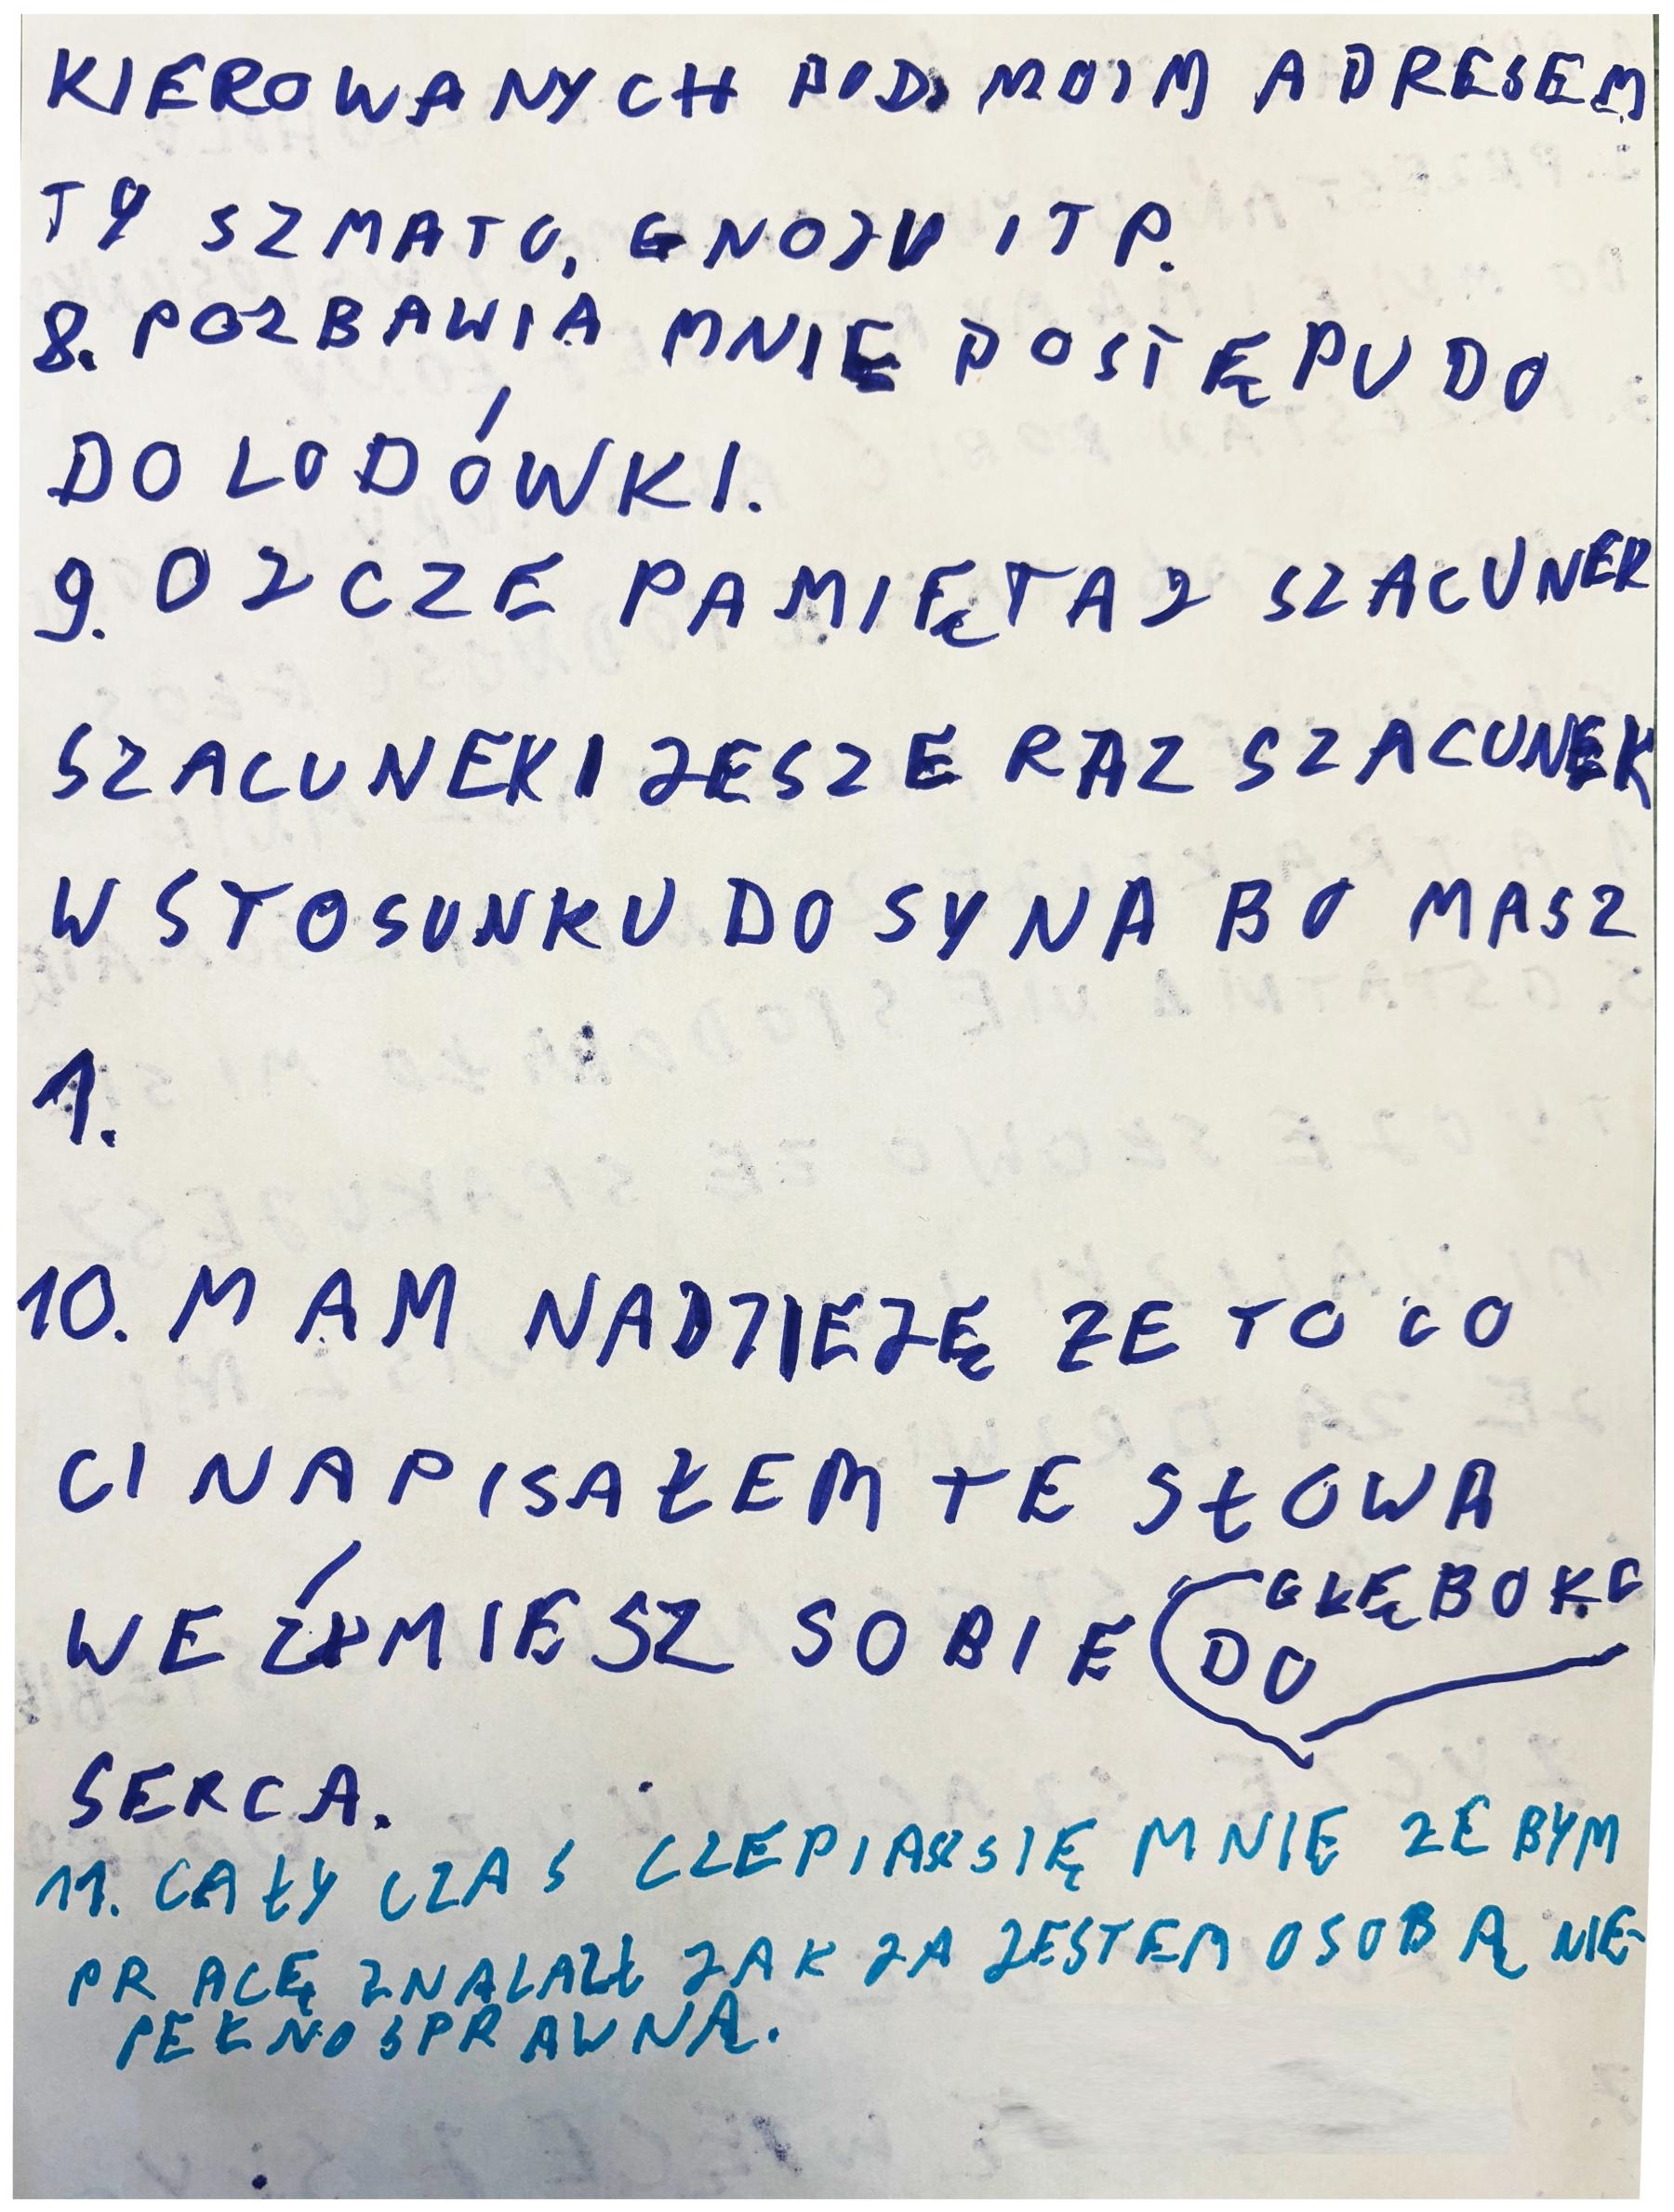 KIEROWANYCH POD MOIM ADRESEM
TY SZMATO, GNOJU ITP.
8. POZBAWIA MNIE DOSTĘPU DO
DO LODÓWKI.
9. OJCZE PAMIĘTAJ SZACUNEK
SZACUNEK I JESZE RAZ SZACUNEK
W STOSUNKU DO SYNA BO MASZ
1.
10. MAM NADZIEJĘ ZE TO CO
CI NAPISAŁEM TE SŁOWA
WEŹMIESZ SOBIE GŁĘBOKO
DO
SERCA.
11. CAŁY CZAS CZEPIA SIĘ MNIE ZEBYM
PRACĘ ZNALAZŁ JAK JA JESTEM OSOBĄ NIE-
PEŁNOSPRAWNĄ.